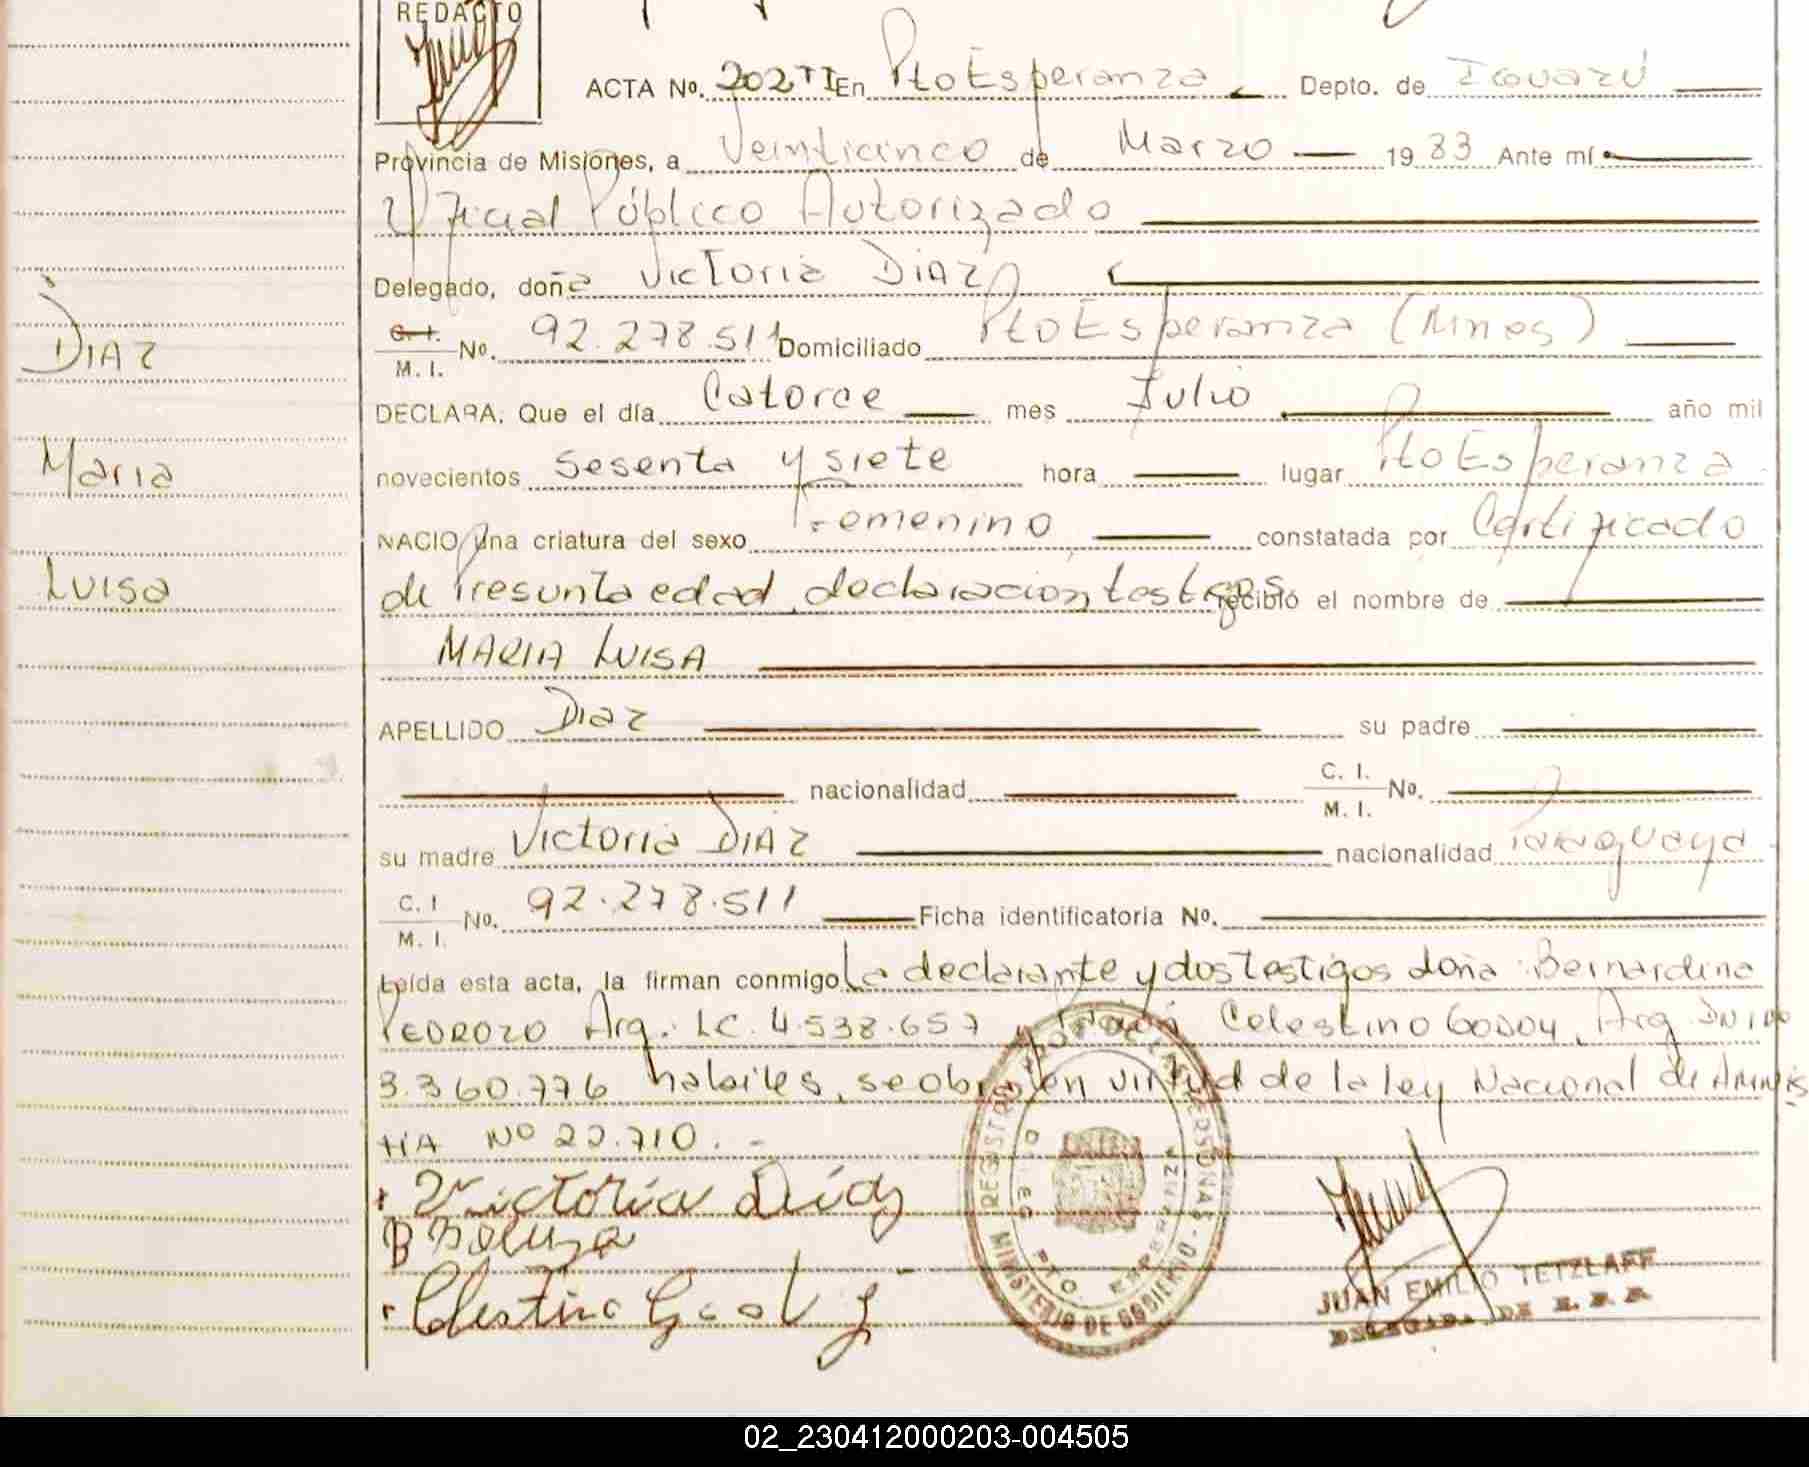 REDACTO
ACTA No. 202 TI En Pto Esperanza Depto. de Iguazú
Provincia de Misiones, a Veinticinco de Marzo 1983 Ante mí
Oficial Público Autorizado
Delegado, doña Victoria DIAZ
C. I. M. I. No. 92.278.511 Domiciliado Pto Esperanza (Mnes)
DIAZ
DECLARA, Que el día Catorce mes Julio año mil
Maria
novecientos sesenta y siete hora lugar Pto Esperanza
NACIO una criatura del sexo Femenino constatada por Certificado
Luisa
de Presunta edad, declaracion, testigos recibió el nombre de
MARIA LUISA
APELLIDO Diaz su padre
nacionalidad C. I. M. I. No.
su madre Victoria DIAZ nacionalidad Paraguaya
C. I M. I. No. 92.278.511 Ficha identificatoria No.
Leída esta acta, la firman conmigo La declarante y dos testigos doña Bernardina
PEDROZO Arg. LC. 4.538.657 y Celestino Godoy, Arg
3.360.776 habiles, se obró en virtud de la ley Nacional de Amnis
tiA No 22.710. -
Victoria Díaz
Celestino Godoy
REGISTRO DE LAS PERSONAS - MINISTERIO DE GOBIERNO
PTO. ESPERANZA
JUAN EMILIO TETZLAFF
02_230412000203-004505